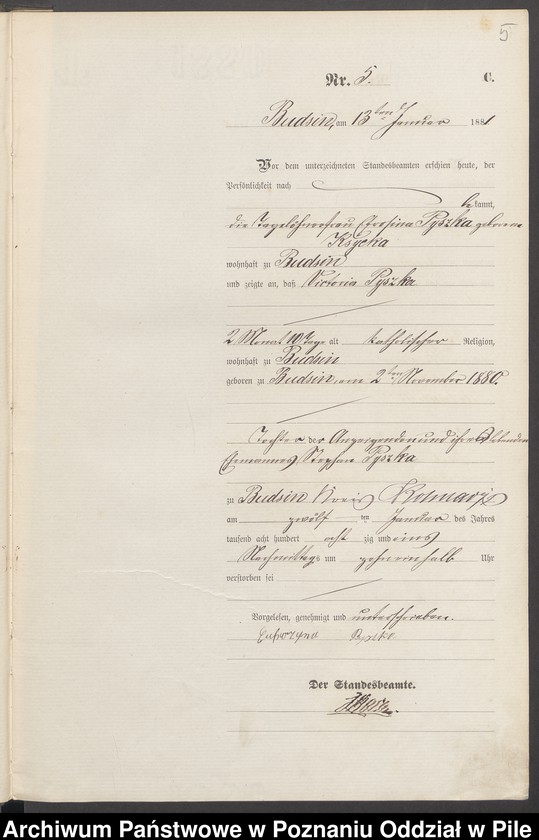 5
Nr. 5. C.
Budsin, am 13ten Januar 1881
Vor dem unterzeichneten Standesbeamten erschien heute, der
Persönlichkeit nach
bekannt,
die Tagelöhnerfrau Eprosina Pyszka geborene
wohnhaft zu Budsin
und zeigte an, daß Victoria Pyszka
2 Monat 10 Tage alt katholischer Religion,
wohnhaft zu Budsin
geboren zu Budsin, am 2ten November 1880.
Tochter der Anzeigenden und ihres
Ehemannes Stephan Pyszka
zu Budsin Kreis Kolmar i/P
am zwölf ten Januar des Jahres
tausend acht hundert acht zig und eins
Nachmittags um zehneinhalb Uhr
verstorben sei
Vorgelesen, genehmigt und unterschrieben.
Der Standesbeamte.
Archiwum Państwowe w Poznaniu Oddział w Pile